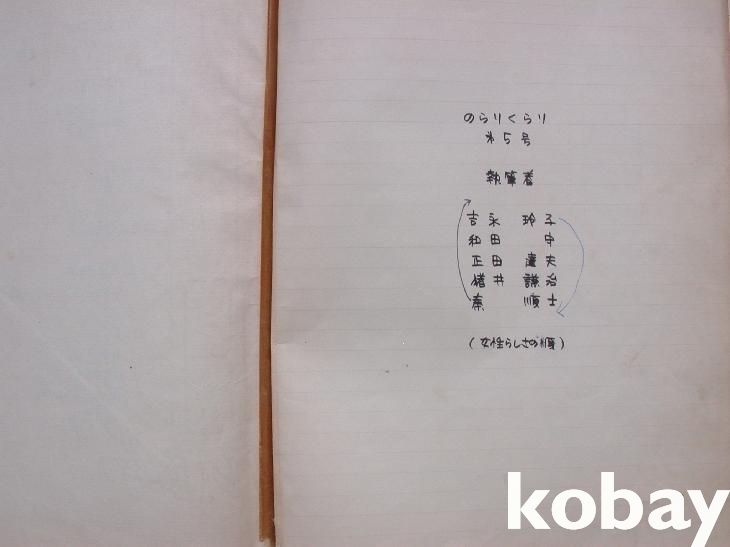 のらりくらり
第5号
執筆者
吉永 玲子
和田 守
正田 達夫
猪井 謙治
秦 順士
(女性らしさの順)
kobay